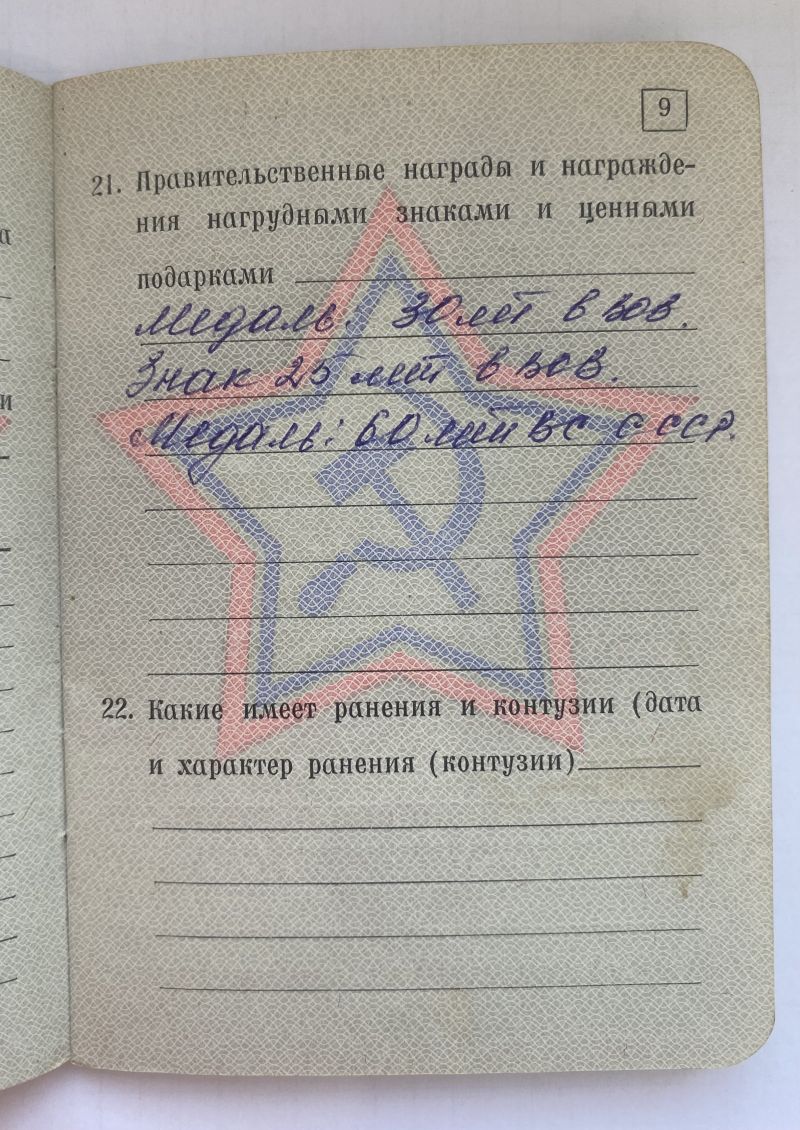 9
21. Правительственные награды и награжде-
ния нагрудными знаками и ценными
подарками
Медаль. 30 лет в вов.
Знак 25 лет в вов.
Медаль: 60 лет ВС СССР.
22. Какие имеет ранения и контузии (дата
и характер ранения (контузии)
а
и